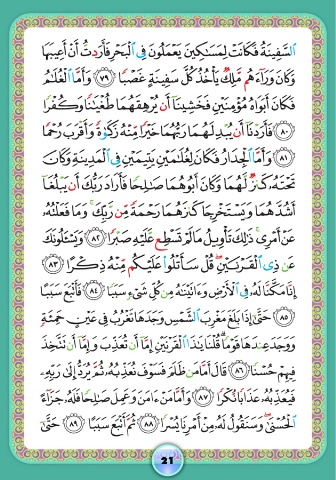 ٱلسَّفِينَةُ فَكَانَتْ لِمَسَٰكِينَ يَعْمَلُونَ فِى ٱلْبَحْرِ فَأَرَدتُّ أَنْ أَعِيبَهَا
وَكَانَ وَرَآءَهُم مَّلِكٌ يَأْخُذُ كُلَّ سَفِينَةٍ غَصْبًا ٧٩ وَأَمَّا ٱلْغُلَٰمُ
فَكَانَ أَبَوَاهُ مُؤْمِنَيْنِ فَخَشِينَآ أَن يُرْهِقَهُمَا طُغْيَٰنًا وَكُفْرًا
٨٠ فَأَرَدْنَآ أَن يُبْدِلَهُمَا رَبُّهُمَا خَيْرًا مِّنْهُ زَكَوٰةً وَأَقْرَبَ رُحْمًا
٨١ وَأَمَّا ٱلْجِدَارُ فَكَانَ لِغُلَٰمَيْنِ يَتِيمَيْنِ فِى ٱلْمَدِينَةِ وَكَانَ
تَحْتَهُۥ كَنزٌ لَّهُمَا وَكَانَ أَبُوهُمَا صَٰلِحًا فَأَرَادَ رَبُّكَ أَن يَبْلُغَآ
أَشُدَّهُمَا وَيَسْتَخْرِجَا كَنزَهُمَا رَحْمَةً مِّن رَّبِّكَ ۚ وَمَا فَعَلْتُهُۥ
عَنْ أَمْرِى ۚ ذَٰلِكَ تَأْوِيلُ مَا لَمْ تَسْطِع عَّلَيْهِ صَبْرًا ٨٢ وَيَسْـَٔلُونَكَ
عَن ذِى ٱلْقَرْنَيْنِ ۖ قُلْ سَأَتْلُوا۟ عَلَيْكُم مِّنْهُ ذِكْرًا ٨٣
إِنَّا مَكَّنَّا لَهُۥ فِى ٱلْأَرْضِ وَءَاتَيْنَٰهُ مِن كُلِّ شَىْءٍ سَبَبًا ٨٤ فَأَتْبَعَ سَبَبًا
٨٥ حَتَّىٰٓ إِذَا بَلَغَ مَغْرِبَ ٱلشَّمْسِ وَجَدَهَا تَغْرُبُ فِى عَيْنٍ حَمِئَةٍ
وَوَجَدَ عِندَهَا قَوْمًا ۗ قُلْنَا يَٰذَا ٱلْقَرْنَيْنِ إِمَّآ أَن تُعَذِّبَ وَإِمَّآ أَن تَتَّخِذَ
فِيهِمْ حُسْنًا ٨٦ قَالَ أَمَّا مَن ظَلَمَ فَسَوْفَ نُعَذِّبُهُۥ ثُمَّ يُرَدُّ إِلَىٰ رَبِّهِۦ
فَيُعَذِّبُهُۥ عَذَابًا نُّكْرًا ٨٧ وَأَمَّا مَنْ ءَامَنَ وَعَمِلَ صَٰلِحًا فَلَهُۥ جَزَآءً
ٱلْحُسْنَىٰ ۖ وَسَنَقُولُ لَهُۥ مِنْ أَمْرِنَا يُسْرًا ٨٨ ثُمَّ أَتْبَعَ سَبَبًا ٨٩ حَتَّىٰٓ
21